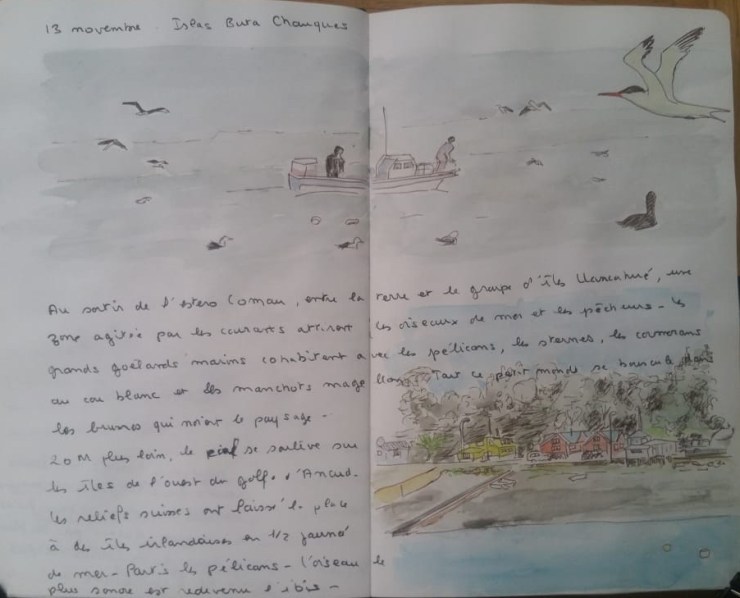 13 novembre. Islas Buta Chauques
Au sortir de l'estero Comau, entre la terre et le groupe d'îles Llancahué, une
zone agitée par les courants attirent les oiseaux de mer et les pêcheurs - les
grands goélands marins cohabitent avec les pélicans, les sternes, les cormorans
au cou blanc et les manchots magellans. Tout ce petit monde se bouscule dans
les brumes qui noient le paysage -
20 M plus loin, le ciel se soulève sur
les îles de l'ouest du golfe d'Ancud.
les reliefs suisses ont laissé la place
à des îles irlandaises en 1/2 journé
de mer - Partis les pélicans - l'oiseau le
plus sonore est redevenu l'ibis -